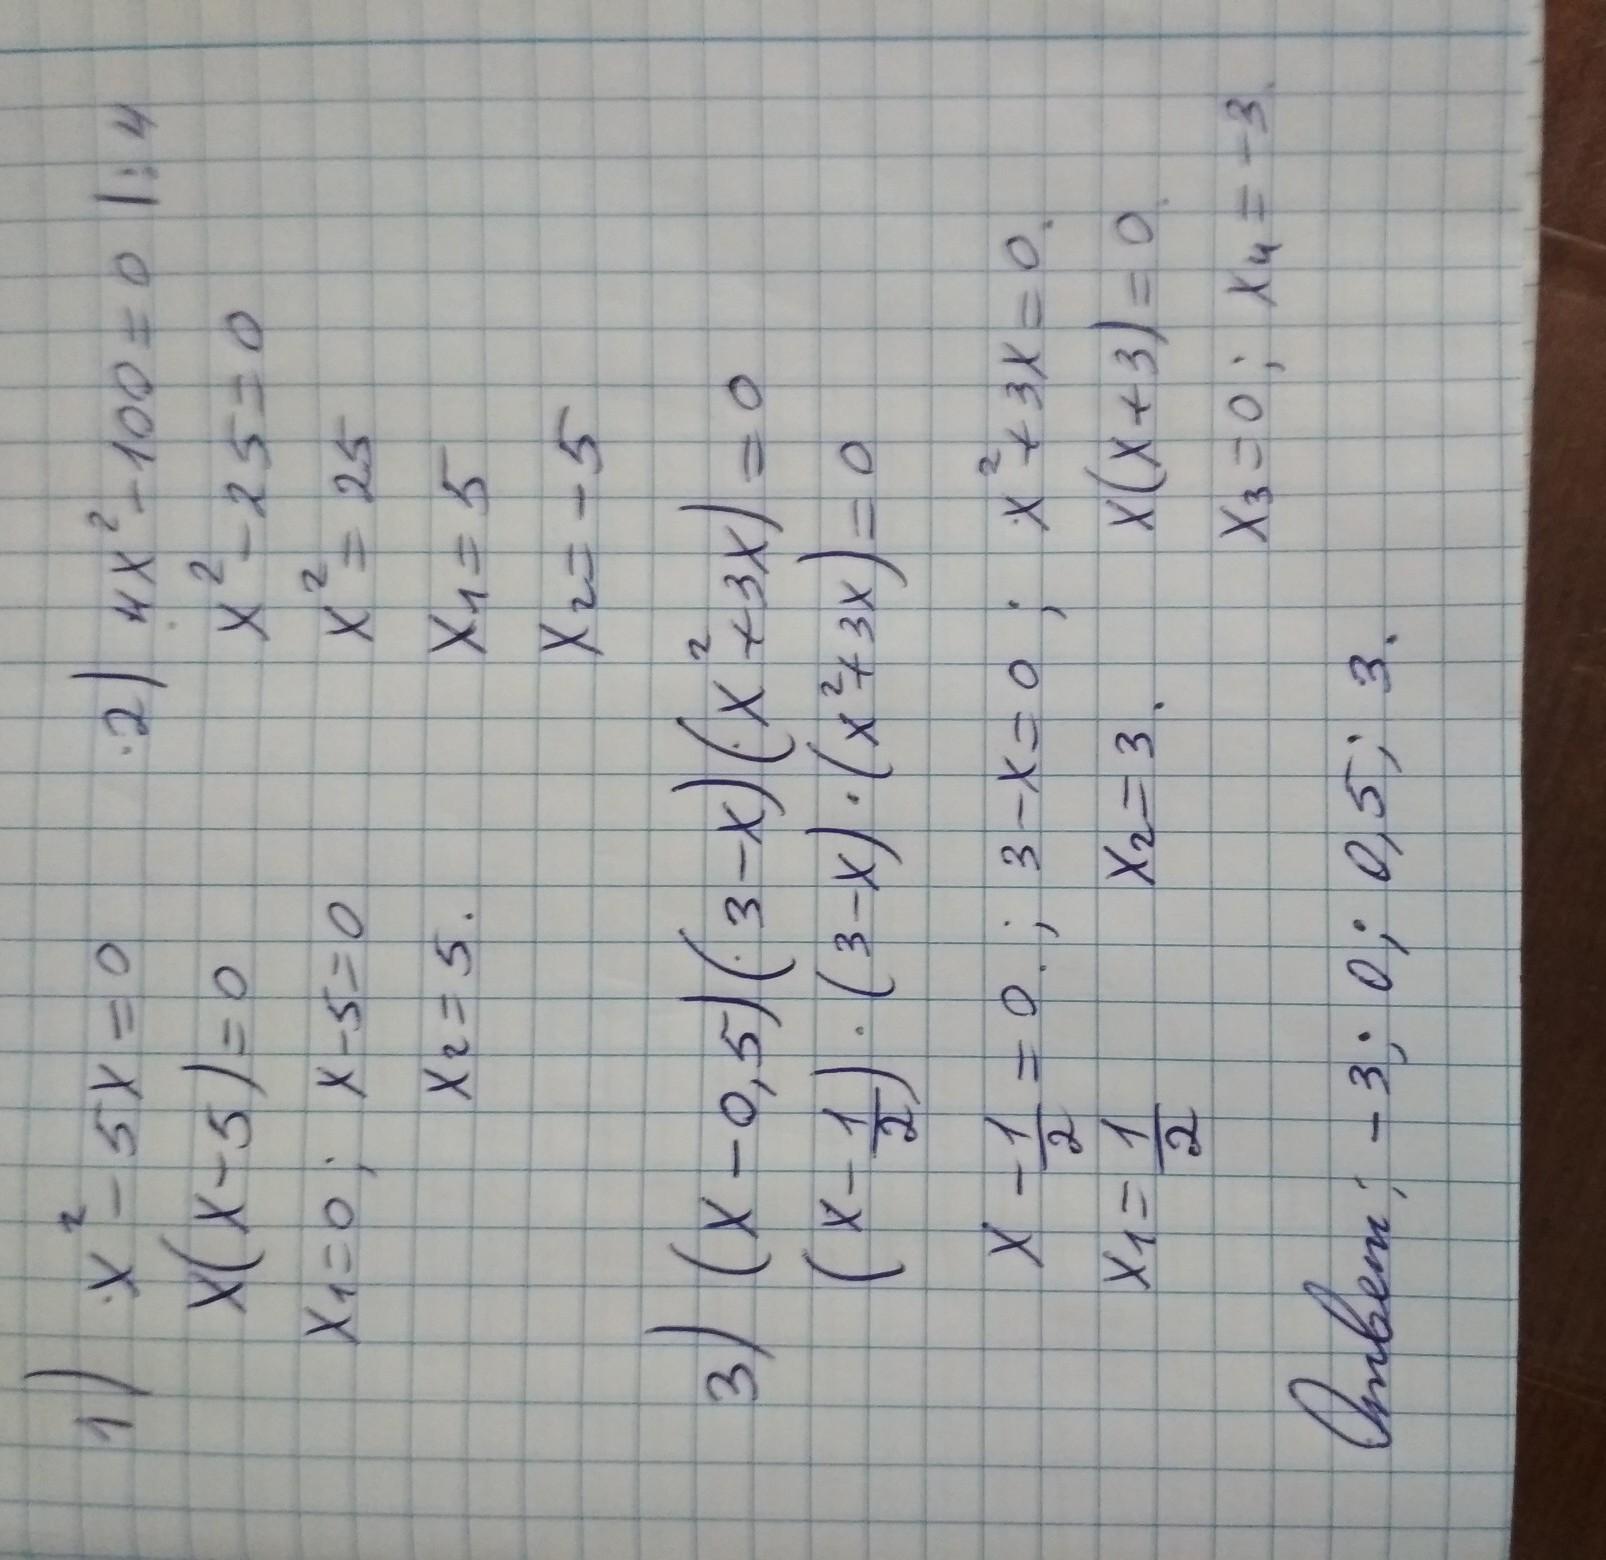 1) x² - 5x = 0
x(x - 5) = 0
x₁ = 0; x - 5 = 0
x₂ = 5.
2) 4x² - 100 = 0 |: 4
x² - 25 = 0
x² = 25
x₁ = 5
x₂ = -5
3) (x - 0,5)(3 - x)(x² + 3x) = 0
(x - 1/2) · (3 - x) · (x² + 3x) = 0
x - 1/2 = 0; 3 - x = 0; x² + 3x = 0.
x₁ = 1/2 x₂ = 3. x(x + 3) = 0.
x₃ = 0; x₄ = -3.
Ответ: -3; 0; 0,5; 3.